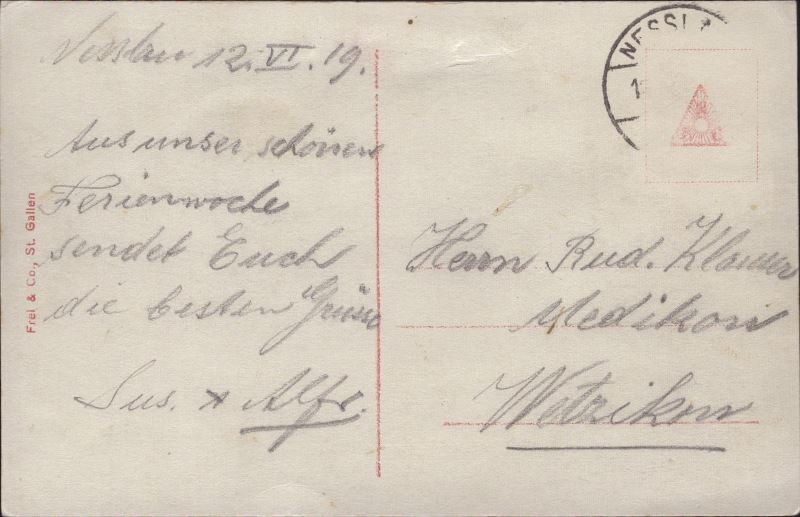 Nesslau 12.VI.19.
Aus unser schönen
Ferienwoche
sendet Euch
die besten Grüsse
Sus. + Alfr.
Frei & Co., St. Gallen
NESSL
1
Herrn Rud. Klauser
Medikon
Wetzikon